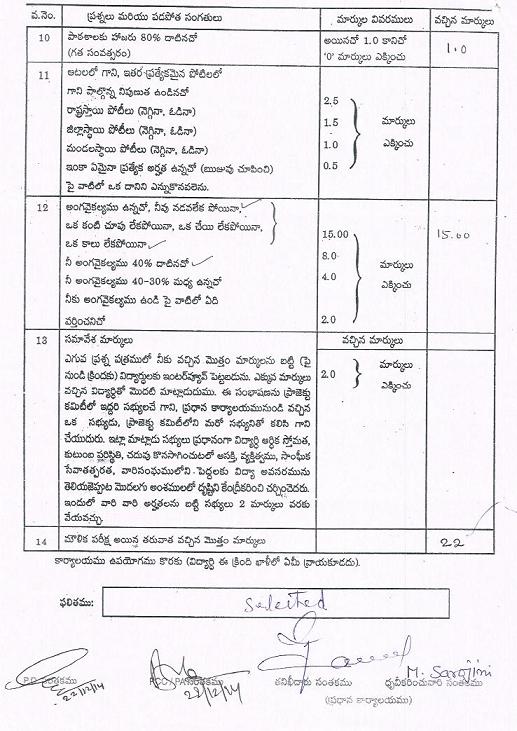 వ.నెం. ప్రశ్నలు మరియు పడపోత సంగతులు మార్కుల వివరములు వచ్చిన మార్కులు
10 పాఠశాలకు హాజరు 80% దాటినచో అయినచో 1.0 కానిచో 1.0
(గత సంవత్సరం) '0' మార్కులు ఎక్కించు
11 ఆటలలో గాని, ఇతర ప్రత్యేకమైన పోటీలలో
గాని పాల్గొన్న నిపుణుత ఉండినచో
రాష్ట్రస్థాయి పోటీలు (నెగ్గినా, ఓడినా) 2.5
జిల్లాస్థాయి పోటీలు (నెగ్గినా, ఓడినా) 1.5 మార్కులు
మండలస్థాయి పోటీలు (నెగ్గినా, ఓడినా) 1.0 ఎక్కించు
ఇంకా ఏమైనా ప్రత్యేక అర్హత ఉన్నచో (ఋజువు చూపించి) 0.5
పై వాటిలో ఒక దానిని ఎన్నుకొనవలెను.
12 అంగవైకల్యము ఉన్నచో, నీవు నడవలేక పోయినా,
ఒక కంటి చూపు లేకపోయినా, ఒక చేయి లేకపోయినా, 15.00 15.00
ఒక కాలు లేకపోయినా
నీ అంగవైకల్యము 40% దాటినచో 8.0 మార్కులు
నీ అంగవైకల్యము 40-30% మధ్య ఉన్నచో 4.0 ఎక్కించు
నీకు అంగవైకల్యము ఉండి పై వాటిలో ఏది
వర్తించనిచో 2.0
13 సమావేశ మార్కులు వచ్చిన మార్కులు
ఎగువ ప్రశ్న పత్రములో నీకు వచ్చిన మొత్తం మార్కులను బట్టి (పై మార్కులు
నుండి క్రిందకు) విద్యార్థులకు ఇంటర్వ్యూవ్ పెట్టబడును. ఎక్కువ మార్కులు 2.0 ఎక్కించు
వచ్చిన విద్యార్థితో మొదటి మాట్లాడుదురు. ఈ సంభాషణను ప్రాజెక్టు
కమిటీలో ఇద్దరి సభ్యులచే గాని, ప్రధాన కార్యాలయమునుండి వచ్చిన
ఒక సభ్యుడు, ప్రాజెక్టు కమిటీలోని మరో సభ్యునితో కలిసి గాని
చేయుదురు. ఇట్లా మాట్లాడు సభ్యులు ప్రధానంగా విద్యార్థి ఆర్థిక స్తోమత,
కుటుంబ పరిస్థితి, చదువు కొనసాగించుటలో ఆసక్తి, వ్యక్తిత్వము, సాంఘీక
సేవాతత్పరత, వారిసంఘములోని పెద్దలకు విద్యా అవసరమును
తెలియజెప్పుట మొదలగు అంశములలో దృష్టిని కేంద్రీకరించి చర్చించెదరు.
ఇందులో వారి వారి అర్హతలను బట్టి సభ్యులు 2 మార్కులు వరకు
వేయవచ్చు.
14 మౌలిక పరీక్ష అయిన తరువాత వచ్చిన మొత్తం మార్కులు 22
కార్యాలయము ఉపయోగము కొరకు (విద్యార్థి ఈ క్రింది ఖాళీలో ఏమీ వ్రాయకూడదు).
ఫలితము: Selected
P.D. సంతకము PCC / PA సంతకము తనిఖీదారు సంతకము ధృవీకరించువారి సంతకము
22/12/14 22/12/14 M. Sarojini
(ప్రధాన కార్యాలయము)